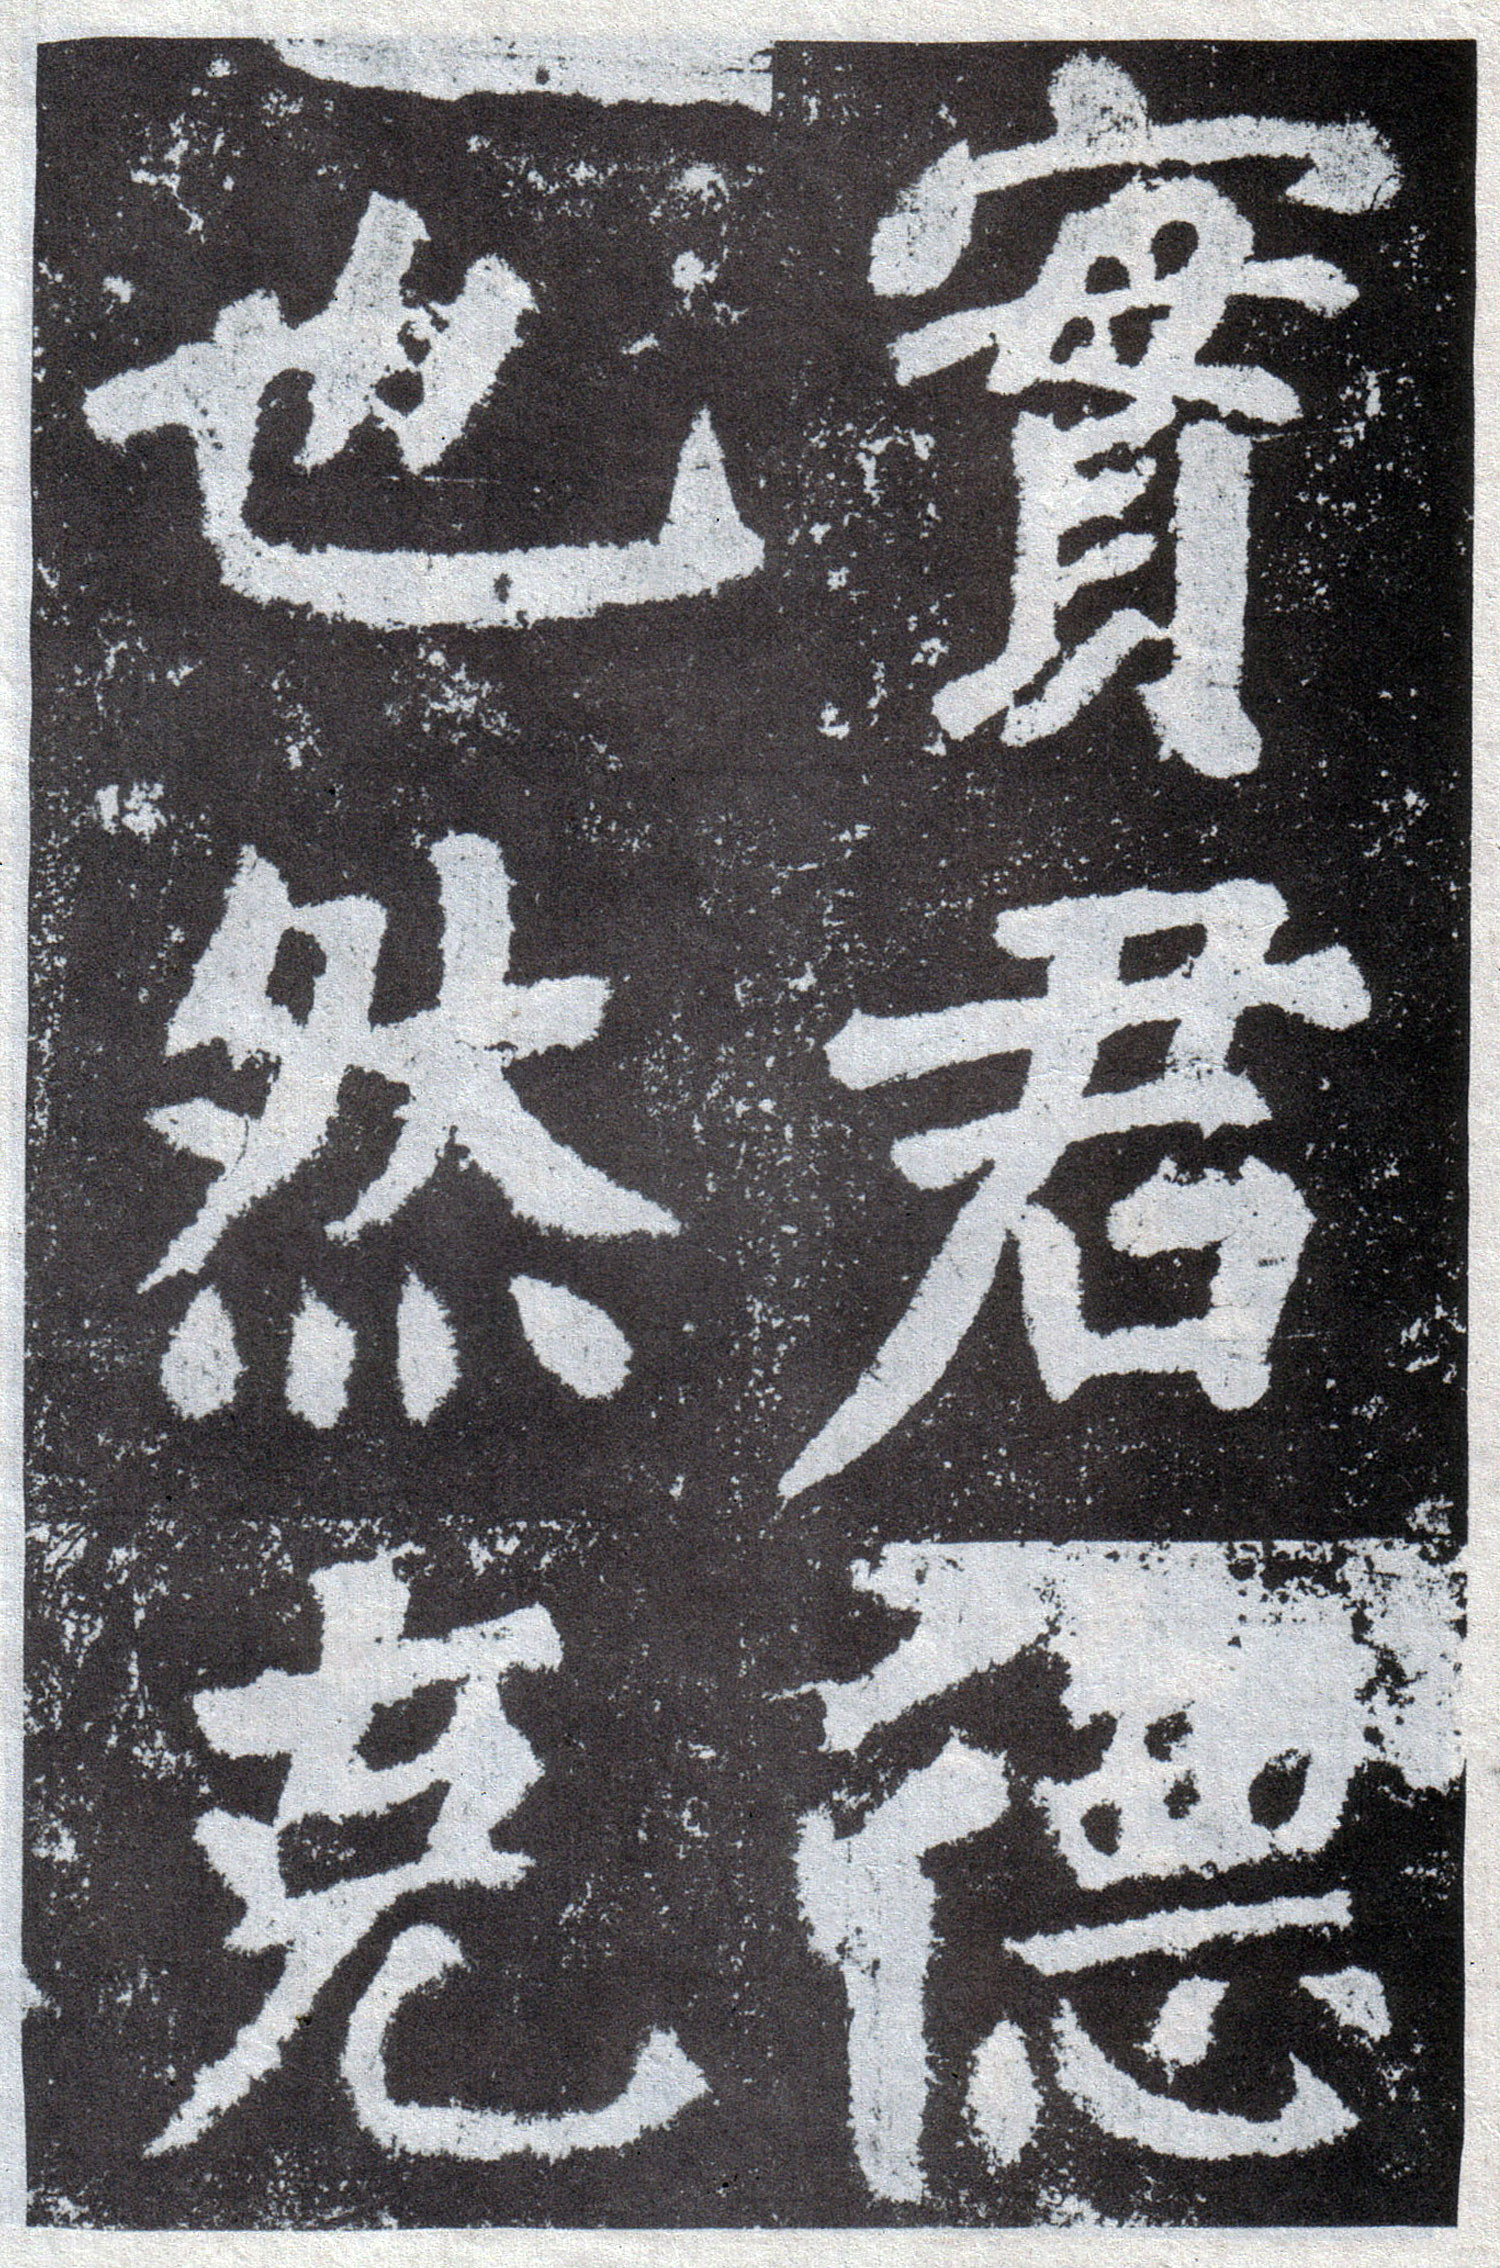 實君德
也然克